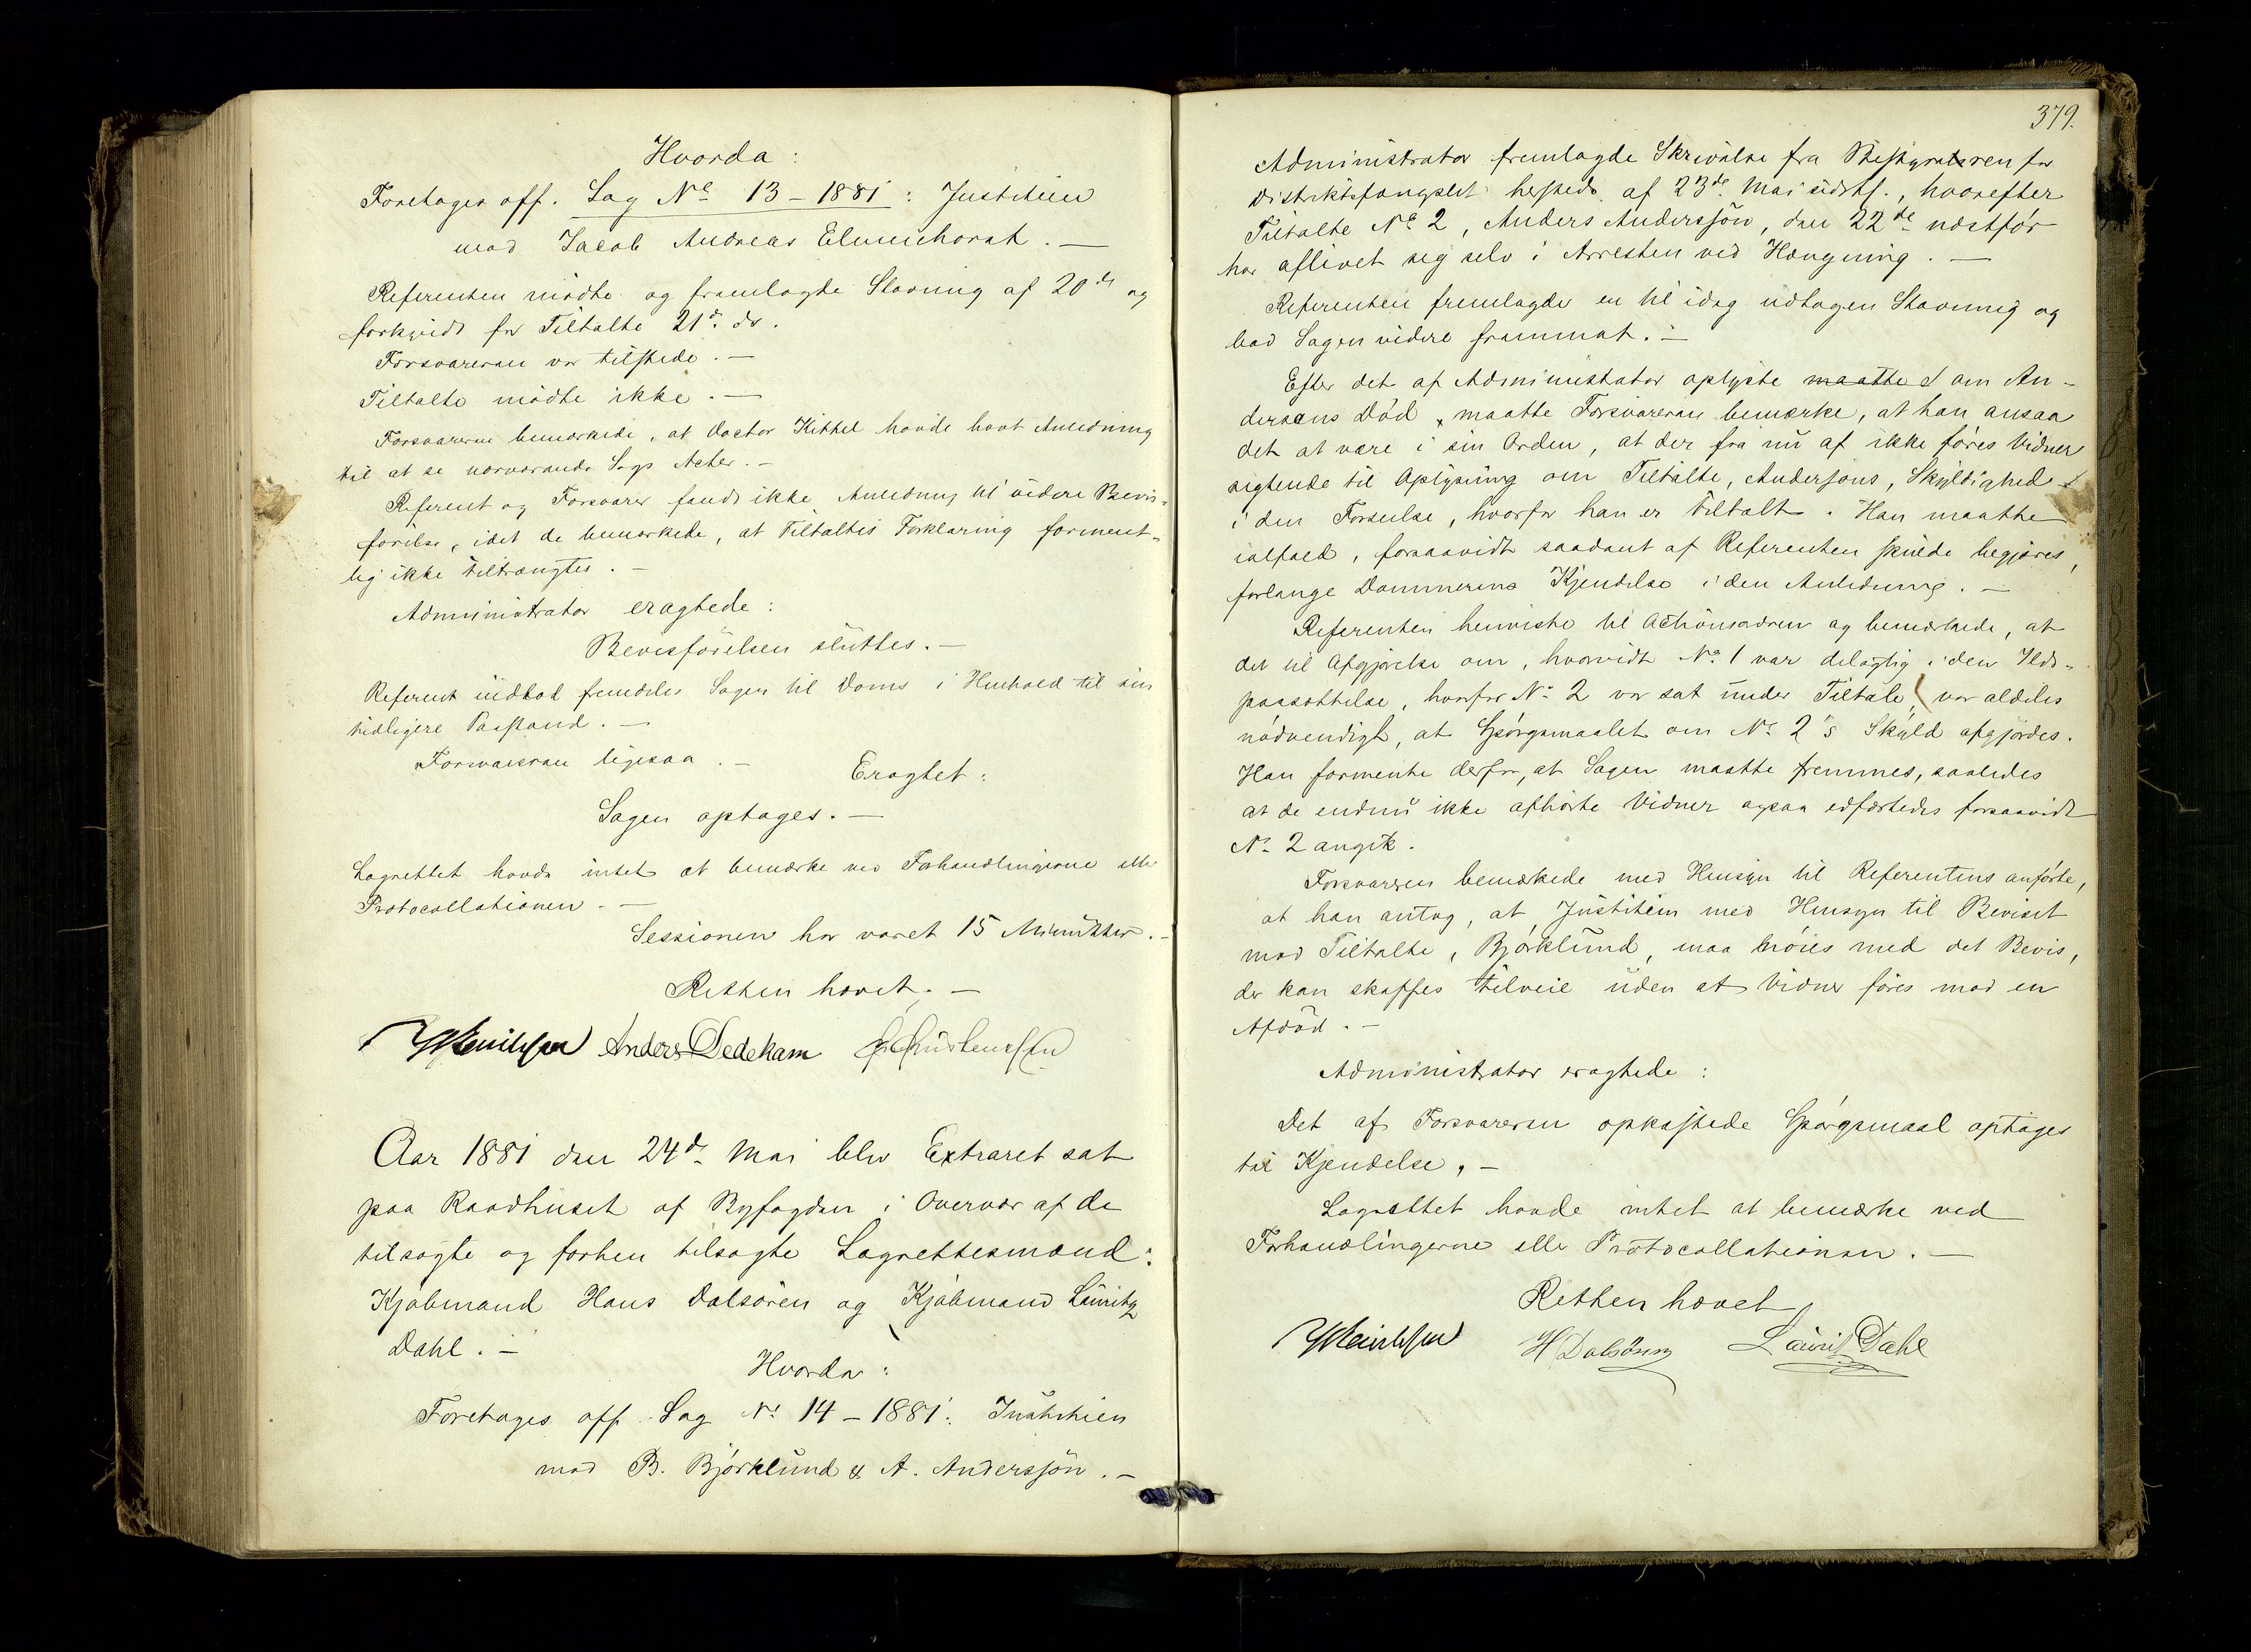 Hvorda:
Foretages off. Sag No 13 – 1881: Justitien
mod Jacob Andreas Elmenhorst. —
Referenten mødte og fremlagde Stævning af 20de og
forkyndt for Tiltalte 21de ds.
Forsvareren var tilstede. —
Tiltalte mødte ikke. —
Forsvareren bemærkede, at Doctor Kittel havde havt Anledning
til at se nærværende Sags Acter. —
Referent og Forsvarer fandt ikke Anledning til videre Bevis-
førelse, idet de bemærkede, at Tiltaltes Forklaring forment-
lig ikke tiltrængtes. —
Administrator eragtede:
Bevisførelsen sluttes. —
Referent indlod fremdeles Sagen til Doms i Henhold til sin
tidligere Paastand. —
Forsvareren ligesaa. —
Eragtet:
Sagen optages. —
Lagrettet havde intet at bemærke ved Forhandlingerne eller
Protocollationen. —
Sessionen har varet 15 Minutter. —
Retten hævet. —
Anders Dedekam
Aar 1881 den 24de Mai blev Extraret sat
paa Raadhuset af Byfogden i Overvær af de
tilsagte og forhen tilsagte Lagrettesmænd:
Kjøbmand Hans Dalsøren og Kjøbmand Lauritz
Dahl. —
Hvorda:
Foretages off. Sag No 14 – 1881: Justitien
mod B. Bjørklund & A. Anderssøn. —
379.
Administrator fremlagde Skrivelse fra Bestyrelsen for
Distriktsfængslet hersteds af 23de Mai sidstl., hvorefter
Tiltalte No 2, Anders Anderssøn, den 22de næstfør
har aflivet sig selv i Arresten ved Hængning. —
Referenten fremlagde en til idag udtagen Stævning og
bad Sagen videre fremmet. —
Efter det af Administrator oplyste maatte om An-
dersens Død, maatte Forsvareren bemærke, at han ansaa
det at være i sin Orden, at der fra nu af ikke føres Vidner
sigtende til Oplysning om Tiltalte, Andersøns, Skyldighed
i den Forseelse, hvorfor han er tiltalt. Han maatte
ialfald, forsaavidt saadant af Referenten skulde begjæres,
forlange Dommerens Kjendelse i den Anledning. —
Referenten henviste til Actionsordren og bemærkede, at
det til Afgjørelse om, hvorvidt No 1 var delagtig i den Ilds-
paasættelse, hvorfor No 2 var sat under Tiltale, var aldeles
nødvendigt, at Spørgsmaalet om No 2's Skyld afgjordes.
Han formente derfor, at Sagen maatte fremmes, saaledes
at de endnu ikke afhørte Vidner ogsaa edfæstedes forsaavidt
No 2 angik.
Forsvareren bemærkede med Hensyn til Referentens anførte,
at han antog, at Justitien med Hensyn til Beviset
mod Tiltalte, Bjørklund, maa nøies med det Bevis,
der kan skaffes tilveie uden at Vidner føres mod en
Afdød. —
Administrator eragtede:
Det af Forsvareren opkastede Spørgsmaal optages
til Kjendelse. —
Lagrettet havde intet at bemærke ved
Forhandlingerne eller Protocollationen. —
Retten hævet
H Dalsøren Laurits Dahl